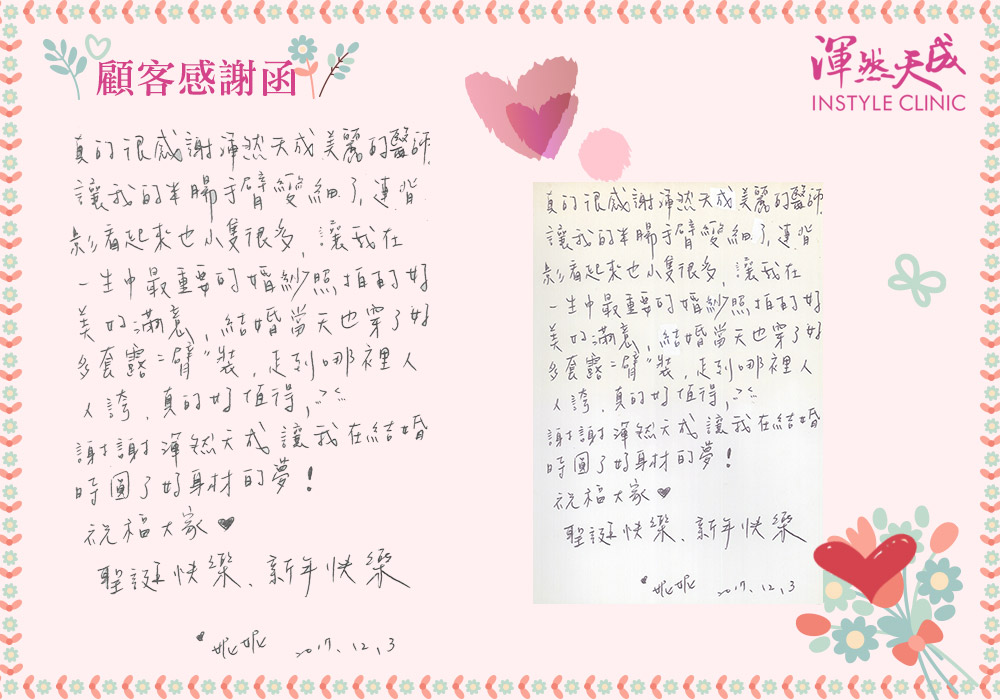 顧客感謝函
渾然天成
INSTYLE CLINIC
真的很感謝渾然天成美麗的醫師
讓我的羊腸手臂變細了,連背
影看起來也小隻很多,讓我在
一生中最重要的婚紗照拍的好
美好滿意,結婚當天也穿了好
多套露"臂"裝,走到哪裡人
人誇,真的好值得,
謝謝渾然天成讓我在結婚
時圓了好身材的夢!
祝福大家♥
聖誕快樂、新年快樂
妮妮 2017.12.3
真的很感謝渾然天成美麗的醫師
讓我的羊腸手臂變細了,連背
影看起來也小隻很多,讓我在
一生中最重要的婚紗照拍的好
美好滿意,結婚當天也穿了好
多套露"臂"裝,走到哪裡人
人誇,真的好值得,
謝謝渾然天成讓我在結婚
時圓了好身材的夢!
祝福大家♥
聖誕快樂、新年快樂
妮妮 2017.12.3